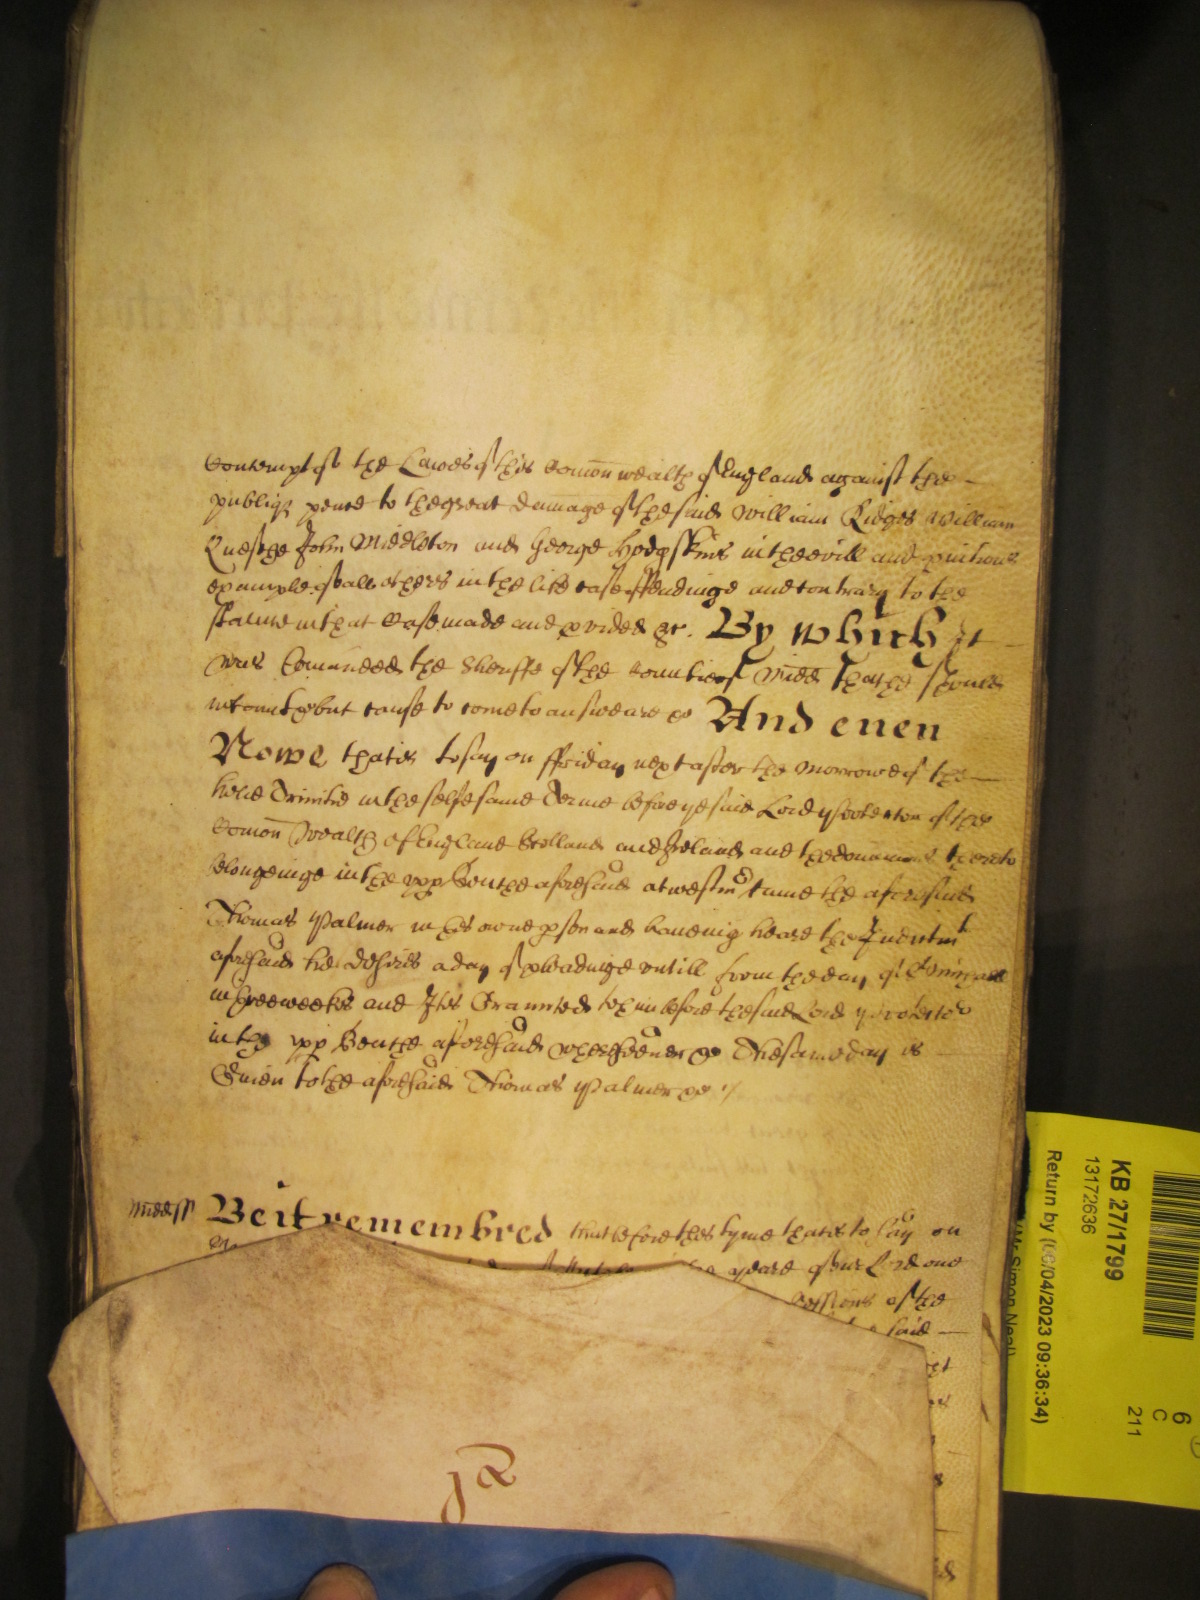 Contempt of the Lawes of this Comōn wealth of England against the
publiq peace to the great damage of the said William Ridges William
Quesfge John Middleton and George Hodgskins in the evill and p'nitious
example of all others in the like case offendinge and contrary to the
statute in that Case made and provided &c. By which it
was Comanded the Sheriffe of the Countie of Midd that he should
not omitt &c but cause to come to answeare &c And euen
Nowe that is to say on ffriday next after the morrowe of the
holie Trinitie in the selfe same Terme before ye said Lord Protector of the
Comon Wealth of England Scotland and Ireland and the dominions thereto
belongeinge in the vpp Benche aforesaid at Westm' came the aforesaid
Thomas Palmer in his owne pson and haueing heard the Indictmt
aforesaid he desires a day of pleadinge vntill from the day of
in three weekes and It is Graunted to him before the said Lord Protector
in the vpp Benche aforesaid wheresoeuer &c The same day is
Giuen to the aforesaid Thomas Palmer &c
Midd ss Be it remembred that before this tyme that is to say on
yeare of our Lord one
Sessions of the
said
KB 27/1799
13172636
Return by (06/04/2023 09:36:34)
(Mr Simon Neal)
6
C
211